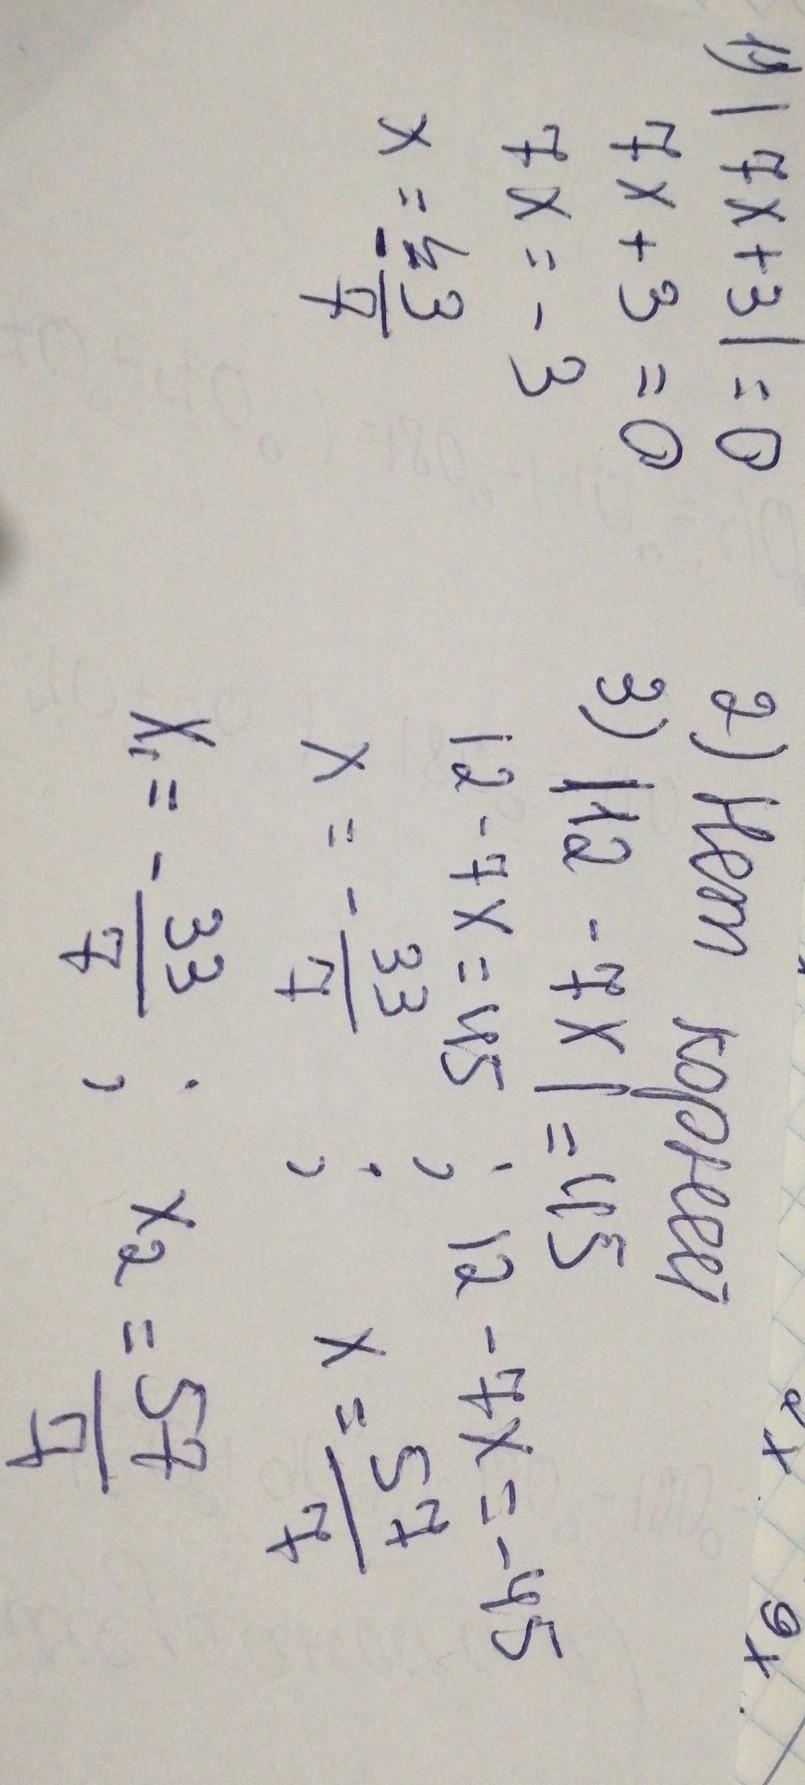 1) |7x+3|=0
7x+3=0
7x=-3
x=-3/7
2) Нет корней
3) |12-7x|=45
12-7x=45 ; 12-7x=-45
x=-33/7 ; x=57/7
x₁=-33/7 ; x₂=57/7